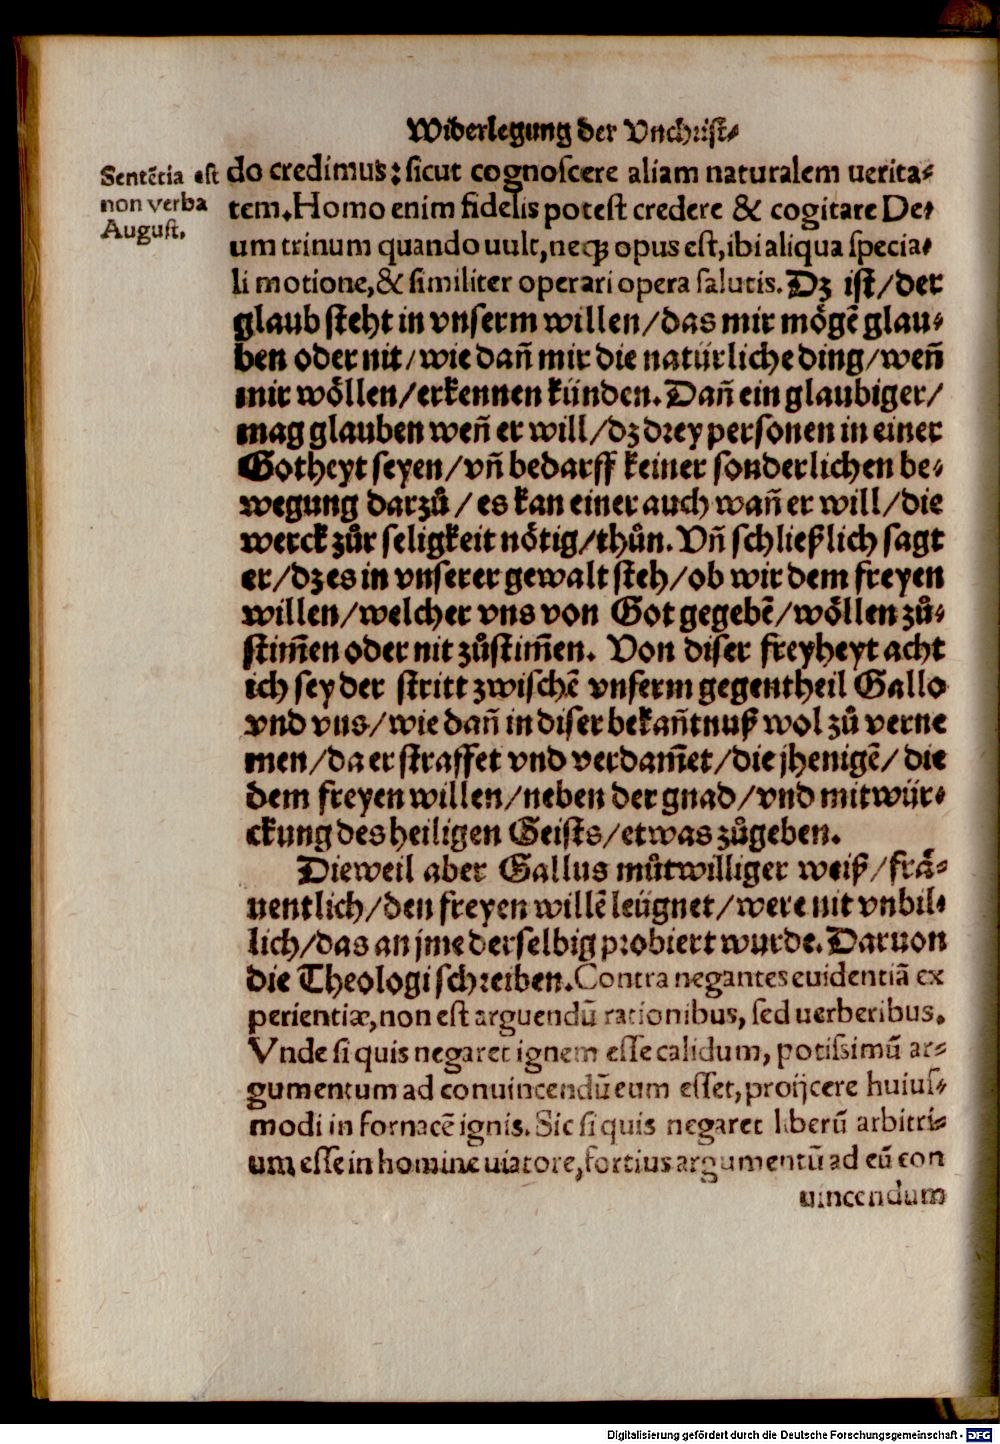 Widerlegung der Vnchrist⸗
Sentētia est
non verba
August.
do credimus: sicut cognoscere aliam naturalem uerita⸗
tem. Homo enim fidelis potest credere & cogitare De⸗
um trinum quando uult, neqꝫ opus est, ibi aliqua specia⸗
li motione, & similiter operari opera salutis. Dz ist/der
glaub steht in vnserm willen/das mir mögē glau⸗
ben oder nit/wie dañ mir die natürliche ding/weñ
mir wöllen/erkennen künden. Dañ ein glaubiger/
mag glauben weñ er will/dz drey personen in einer
Gotheyt seyen/vñ bedarff keiner sonderlichen be⸗
wegung darzů/es kan einer auch wañ er will/die
werck zůr seligkeit nötig/thůn. Vñ schließlich sagt
er/dz es in vnserer gewalt steh/ob wir dem freyen
willen/welcher vns von Got gegebē/wöllen zů⸗
stim̃en oder nit zůstim̃en. Von diser freyheyt acht
ich sey der stritt zwischē vnserm gegentheil Gallo
vnd vns/wie dañ in diser bekañtnuß wol zů verne
men/da er straffet vnd verdam̃et/die jhenigē/die
dem freyen willen/neben der gnad/vnd mitwür⸗
ckung des heiligen Geists/etwas zůgeben.
Dieweil aber Gallus můtwilliger weiß/frä⸗
uentlich/den freyen willē leügnet/were nit vnbil⸗
lich/das an jme derselbig probiert wurde. Daruon
die Theologi schreiben. Contra negantes euidentiā ex
perientiæ, non est arguendū rationibus, sed uerberibus.
Vnde si quis negaret ignem esse calidum, potissimū ar⸗
gumentum ad conuincendū eum esset, proijcere huius⸗
modi in fornacē ignis. Sic si quis negaret liberū arbitri⸗
um esse in homine uiatore, fortius argumentū ad eū con
uincendum
Digitalisierung gefördert durch die Deutsche Forschungsgemeinschaft - DFG